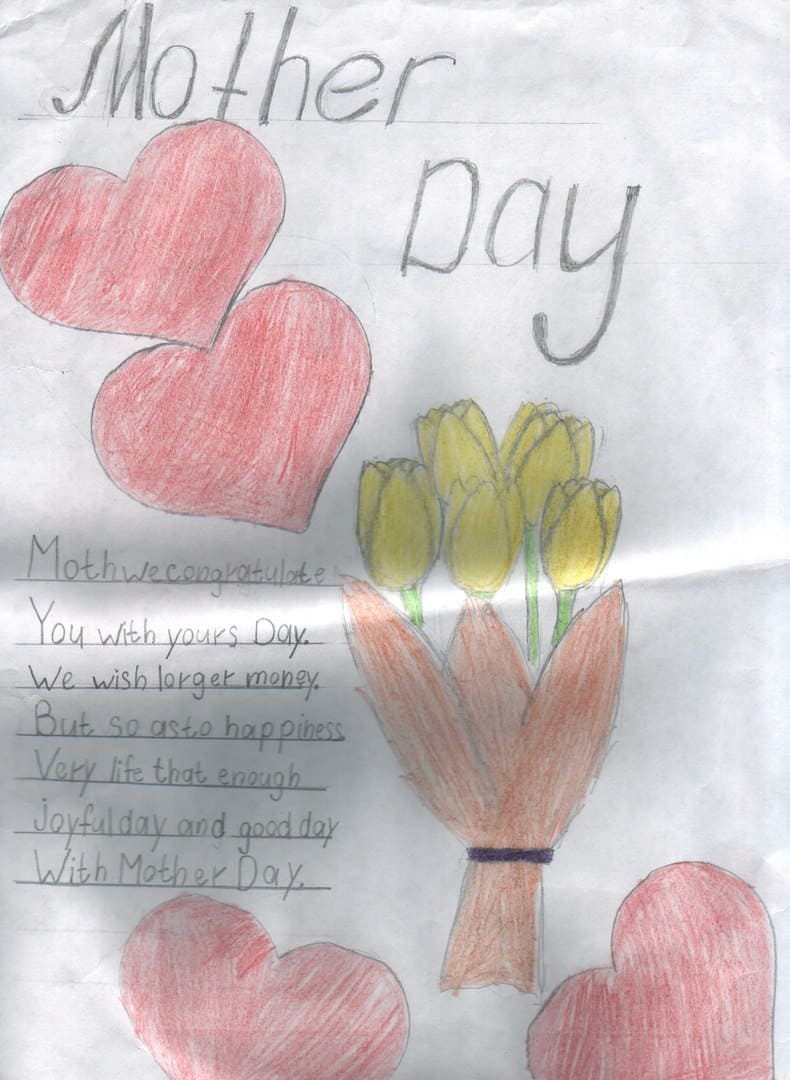 Mother
Day
Moth we congratulate
You with yours Day.
We wish lorger money.
But so as to happiness
Very life that enough
joyful day and good day
With Mother Day.